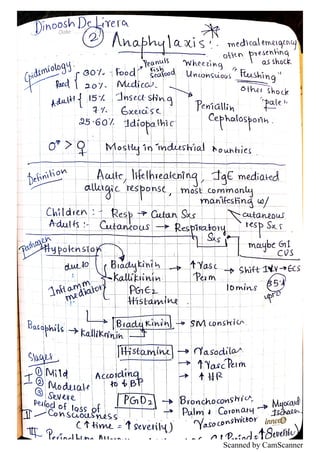 Dinoosh De Livera
② Anaphylaxis :
medical emergency
often presenting
as shock
Epidemiology
Wheezing
Unconsious
"Flushing"
other shock
"pale"
30% Food → Peanuts
fish
seafood
20% Medica.
Adults 15% Insect sting
7% Exercise
25-60% Idiopathic
Penicillin
Cephalosporin.
♂ > ♀ Mostly in industrial countries.
Definition
Acute, lifethreatening, IgE mediated
allergic response, most commonly
manifesting w/
Children :- Resp → Cutan Sxs
Adults :- Cutaneous → Respiratory Sxs
cutaneous
resp Sxs
maybe GI
CVS
Hypotension
due to
Inflamm
mediators
Bradykinin
Kallikrinin
PGE2
Histamine
→ ↑ Vasc Perm → Shift IVV → ECS
10mins 35%
Basophils → Kallikrinin → Bradykinin → SM constric
Histamine → Vasodila
→ ↑ Vasc Perm
→ ↑ HR
Stages
I ① Mild
② Moderate
③ Severe
According to ↓ BP
II Period of loss of Consciousness
(↑ time = ↑ severity)
PGD2 → Bronchoconstric
→ Pulm + Coronary Vasoconstrictor → Myocard Ischaem
III
Scanned by CamScanner